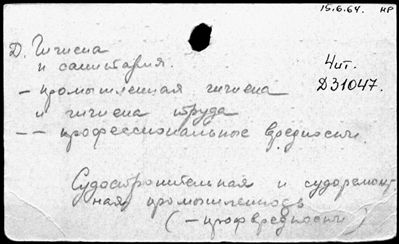 15.6.64. НР
Д. Гигиена
и санитария.
Чит.
Д31047.
– промышленная гигиена
и гигиена труда
– – профессиональные вредности.
Судостроительная и судоремонт-
ная промышленность
(– профвредности)